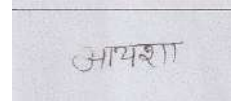 आयशा